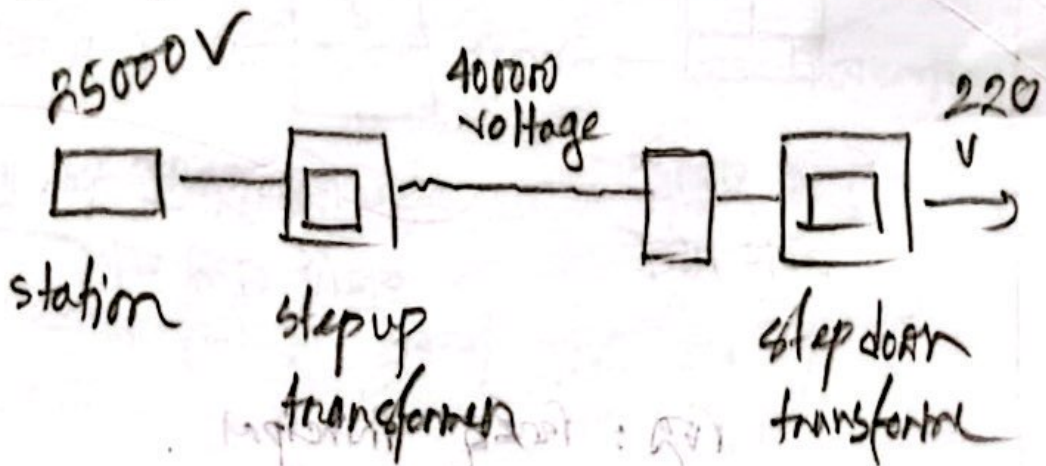 25000 V
400000
voltage
220
V
station
step up
transformer
step down
transforme